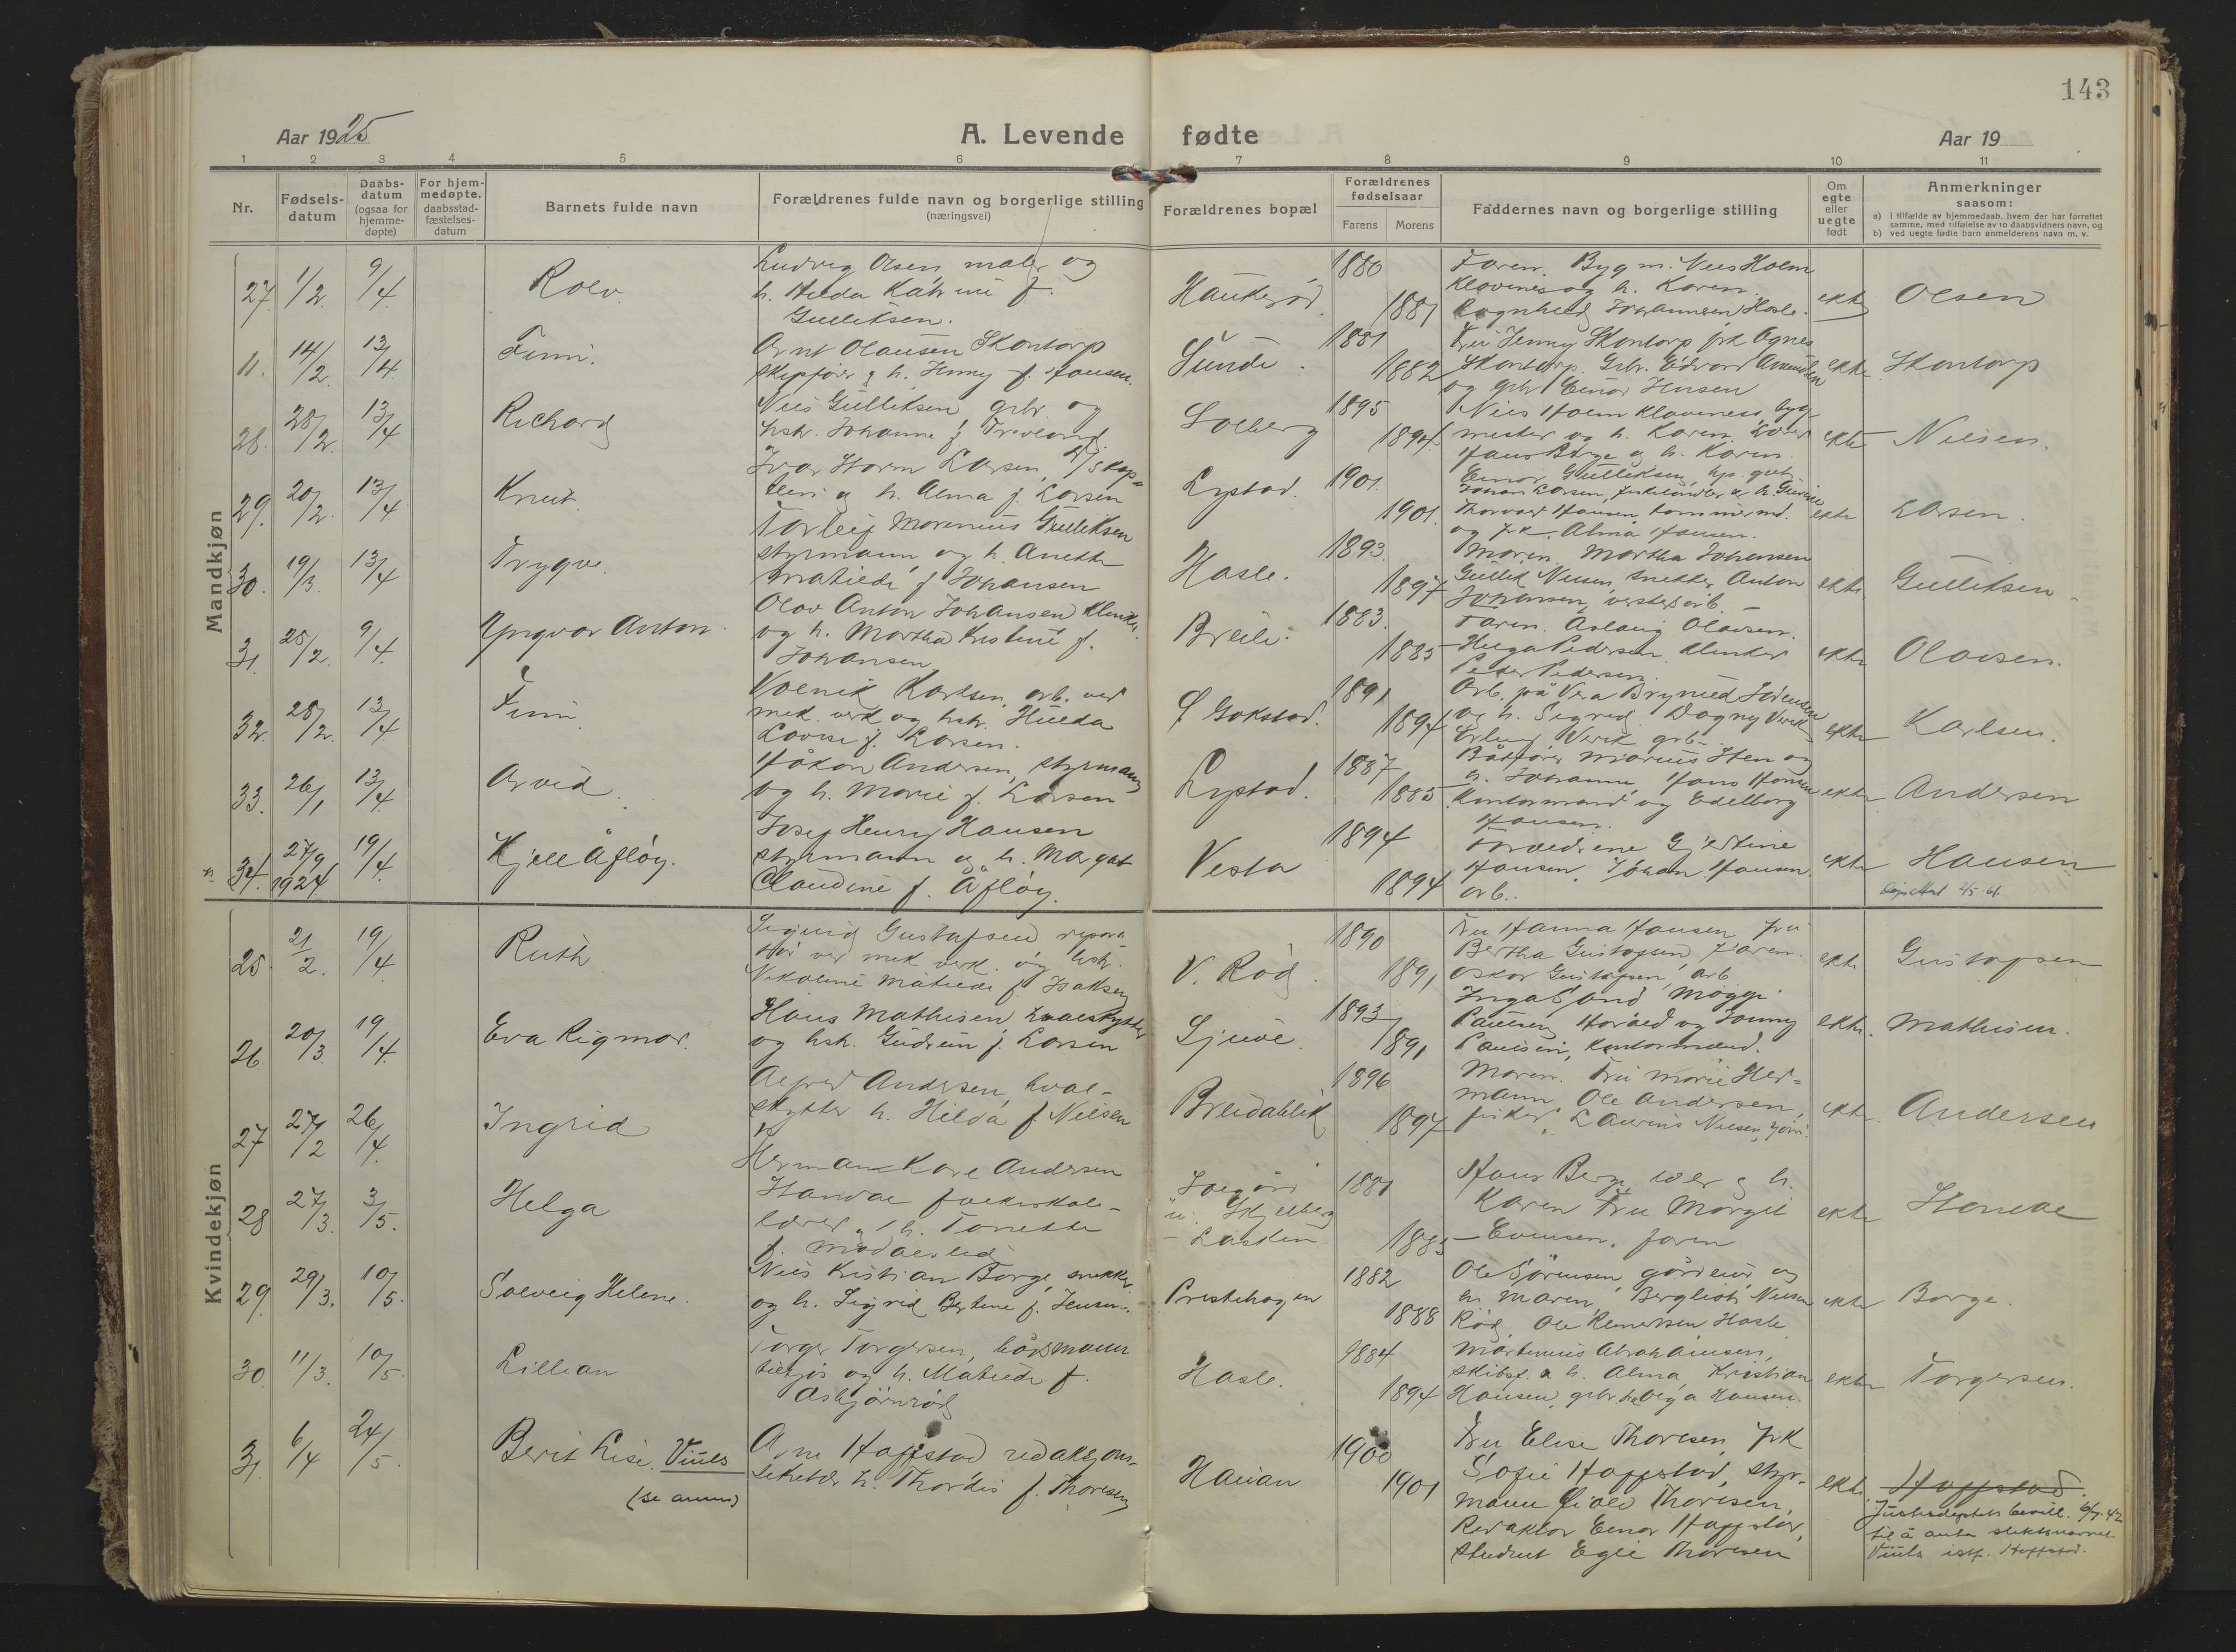 143
Aar 1925
A. Levende fødte
Aar 19
1 2 3 4 5 6 7 8 9 10 11
Nr.
Fødsels-
datum
Daabs-
datum
(ogsaa for
hjemme-
døpte)
For hjem-
medøpte.
daabsstad-
fæstelses-
datum
Barnets fulde navn
Forældrenes fulde navn og borgerlige stilling
(næringsvei)
Forældrenes bopæl
Forældrenes
fødselsaar
Farens
Morens
Faddernes navn og borgerlige stilling
Om
egte
eller
uegte
født
Anmerkninger
saasom:
a) i tilfælde av hjemmedaab, hvem der har forrettet
samme, med tilføielse av to daabsvidners navn, og
b) ved uegte fødte barn anmelderens navn m. v.
Mandkjøn
27. 1/2. 9/4. Rolv.
Ludvig Olsen, maler og
h. Hilda Katrine f.
Gulliksen.
Haukerød. 1880 1881
Faren. Bygm. Nils Holm
Klavenes og h. Karen.
Ragnhild Johannesen Hasle.
ekte Olsen
11. 14/2. 13/4. Finn.
Arnt Olausen Skontorp
skipsfører og h. Jenny f. Hansen.
Sunde. 1881 1882
Fru Jenny Skontorp frk Agnes
Skontorp. Grbr. Edvard Amundsen
og grbr Einar Jensen
ekte Skontorp
28. 28/2. 13/4 Richard
Nils Gulliksen, grbr. og
hstr. Johanne f.
Solberg 1895 1894.
Nils Holm Klaveness, byg-
mester og h. Karen.
Hans Berge og h. Karen.
ekte Nilsen.
29. 20/2. 13/4. Knut.
Ivar Storm Larsen,
og h. Alma f. Larsen
Lystad. 1901. 1901.
Einar Gulliksen
Johan Larsen,
Thorvald Hansen,
og frk. Alma Hansen.
ekte Larsen.
30. 19/3. 13/4 Trygve.
Torleif Marenius Gulliksen
styrmann og h. Anette
Matilde f. Johansen
Hasle. 1893. 1897
Moren. Martha Johansen
Gullik Nilsen, snekker, Anton
Johansen, verkstedarb.
ekte. Gulliksen
31. 25/2. 9/4. Yngvar Anton
Olav Anton Johansen klinker.
og h. Martha Kristine f.
Johansen
Breili. 1883. 1885
Faren. Aslaug Olavsen.
Helga Pedersen. klinker
Peder Pedersen.
ekte Olavsen.
32. 28/2. 13/4. Finn
Karlsen, arb. ved
mek. verk og hstr. Hulda
Lovise f. Larsen.
Gokstad. 1891 1894
Arb. på Vera
og h. Sigrid. Dagny Virik
Erling Virik grb.
ekte Karlsen.
33. 26/1 13/4 Arvid.
Håkon Andersen, styrmann
og h. Marie f. Larsen
Lystad. 1887 1885
Båtfører Marius Sten og
h. Johanne, Hans Hansen
kontormand og Edelborg
Hansen.
ekte Andersen
34. 27/9 1924 19/4. Kjell Åfløy.
Josef Henry Hansen
styrmann og h. Margot
Claudine f. Åfløy.
Vesta 1894 1894
Forældrene Gjertine
Hansen. Johan Hansen.
arb..
ekte Hansen
2/5-61.
Kvindekjøn
25. 21/2. 19/4 Ruth
Sigurd Gustafsen repara
tør ved mek verk. og hstr.
Nikoline Matilde f. Isaksen
V. Rød. 1890 1891
Fru Hanna Hansen fru
Bertha Gustafsen, Faren.
Oskar Gustafsen, arb
ekte. Gustafsen
26. 20/3. 19/4. Eva Rigmor.
Hans Mathisen hvalskytter
og hstr. Gudrun f. Larsen
Ljuve. 1893 1891
Inga Sand Maggi
Paulsen, Harald og Jonny
Paulsen, kontormænd.
ekte. Mathisen.
27 27/2 26/4. Ingrid
Alfred Andersen, hval-
skytter h. Hilda f. Nilsen
Breidablik 1896 1897
Moren. Fru Marie Her-
mann, Ole Andersen,
fisker, Laurits Nilsen,
ekte. Andersen
28 27/3. 3/5. Helga
Herman Kare Andersen
folkeskole-
lærer og h. Tonette
f.
Skjelberg
1881
Hans Berge og h.
Karen Fru Margit
Evensen, faren
ekte
29. 29/3. 10/5. Solveig Helene.
Nils Kristian Borge, snekker
og h. Sigrid Bertine f. Jensen.
Prestehagen 1882 1888
Ole Sörensen, og
h. Maren, Bergliot Nilsen
Rød, Ole Klemetsen Hasle
ekte Borge.
30 11/3. 10/5. Lillian
Torger Torgersen, båsmann
og h. Matilde f.
Asbjørnrød
Hasle. 1884 1894
Martinius Abrahamsen,
skibsf. og h. Alma, Kristian
Hansen, grbr. h. Olga Hansen.
ekte Torgersen.
31. 6/4 24/5. Berit Lise. Viuls
(se anm)
Arne Haffstad redaksjons-
sekretær h. Thordis f. Thoresen
Havan 1900 1901
Fru Elise Thoresen, frk
Sofie Haffstad, styr-
mann Thoresen,
Redaktør Einar Haffstad,
student Egil Thoresen
ekte. Haffstad.
Justisdeptets bevill. 6/7-42
til å anta slektsnavnet
Viuls istf. Haffstad.